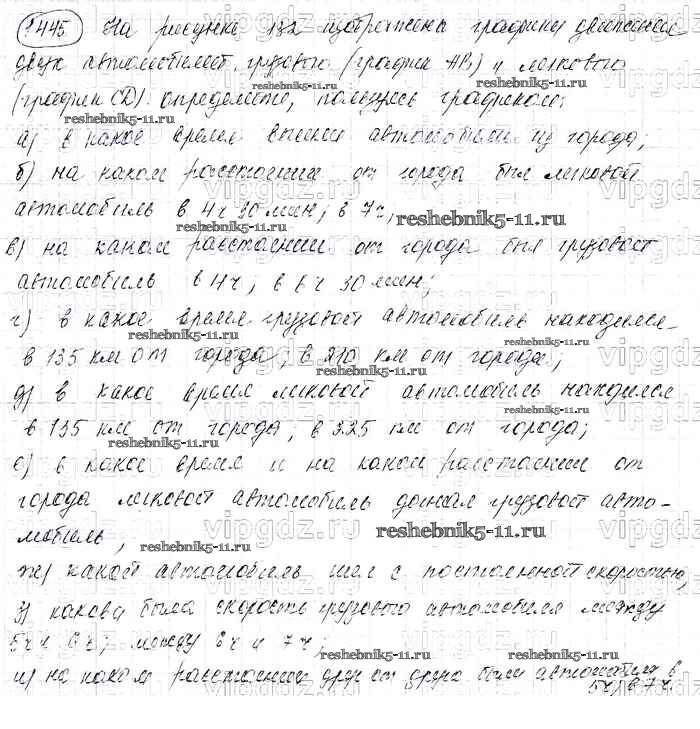 1445. На рисунке 132 изображены графики движения
двух автомобилей, грузового (график АВ) и легкового
(график CD). Определите, пользуясь графиком:
reshebnik5-11.ru
reshebnik5-11.ru
а) в какое время вышли автомобили из города;
б) на каком расстоянии от города был легковой
автомобиль в 4ч 30 мин; в 7ч;
reshebnik5-11.ru
в) на каком расстоянии от города был грузовой
reshebnik5-11.ru
автомобиль в 4ч; в 6ч 30 мин;
г) в какое время грузовой автомобиль находился
reshebnik5-11.ru
в 135 км от города; в 210 км от города;
reshebnik5-11.ru
д) в какое время легковой автомобиль находился
reshebnik5-11.ru
в 135 км от города; в 225 км от города;
reshebnik5-11.ru
е) в какое время и на каком расстоянии от
города легковой автомобиль догнал грузовой авто-
мобиль;
reshebnik5-11.ru
reshebnik5-11.ru
ж) какой автомобиль шел с постоянной скоростью;
з) какова была скорость грузового автомобиля между
reshebnik5-11.ru
5ч и 6ч; между 6ч и 7ч;
reshebnik5-11.ru
и) на каком расстоянии друг от друга были автомобили в
5ч; в 7ч.
reshebnik5-11.ru
reshebnik5-11.ru